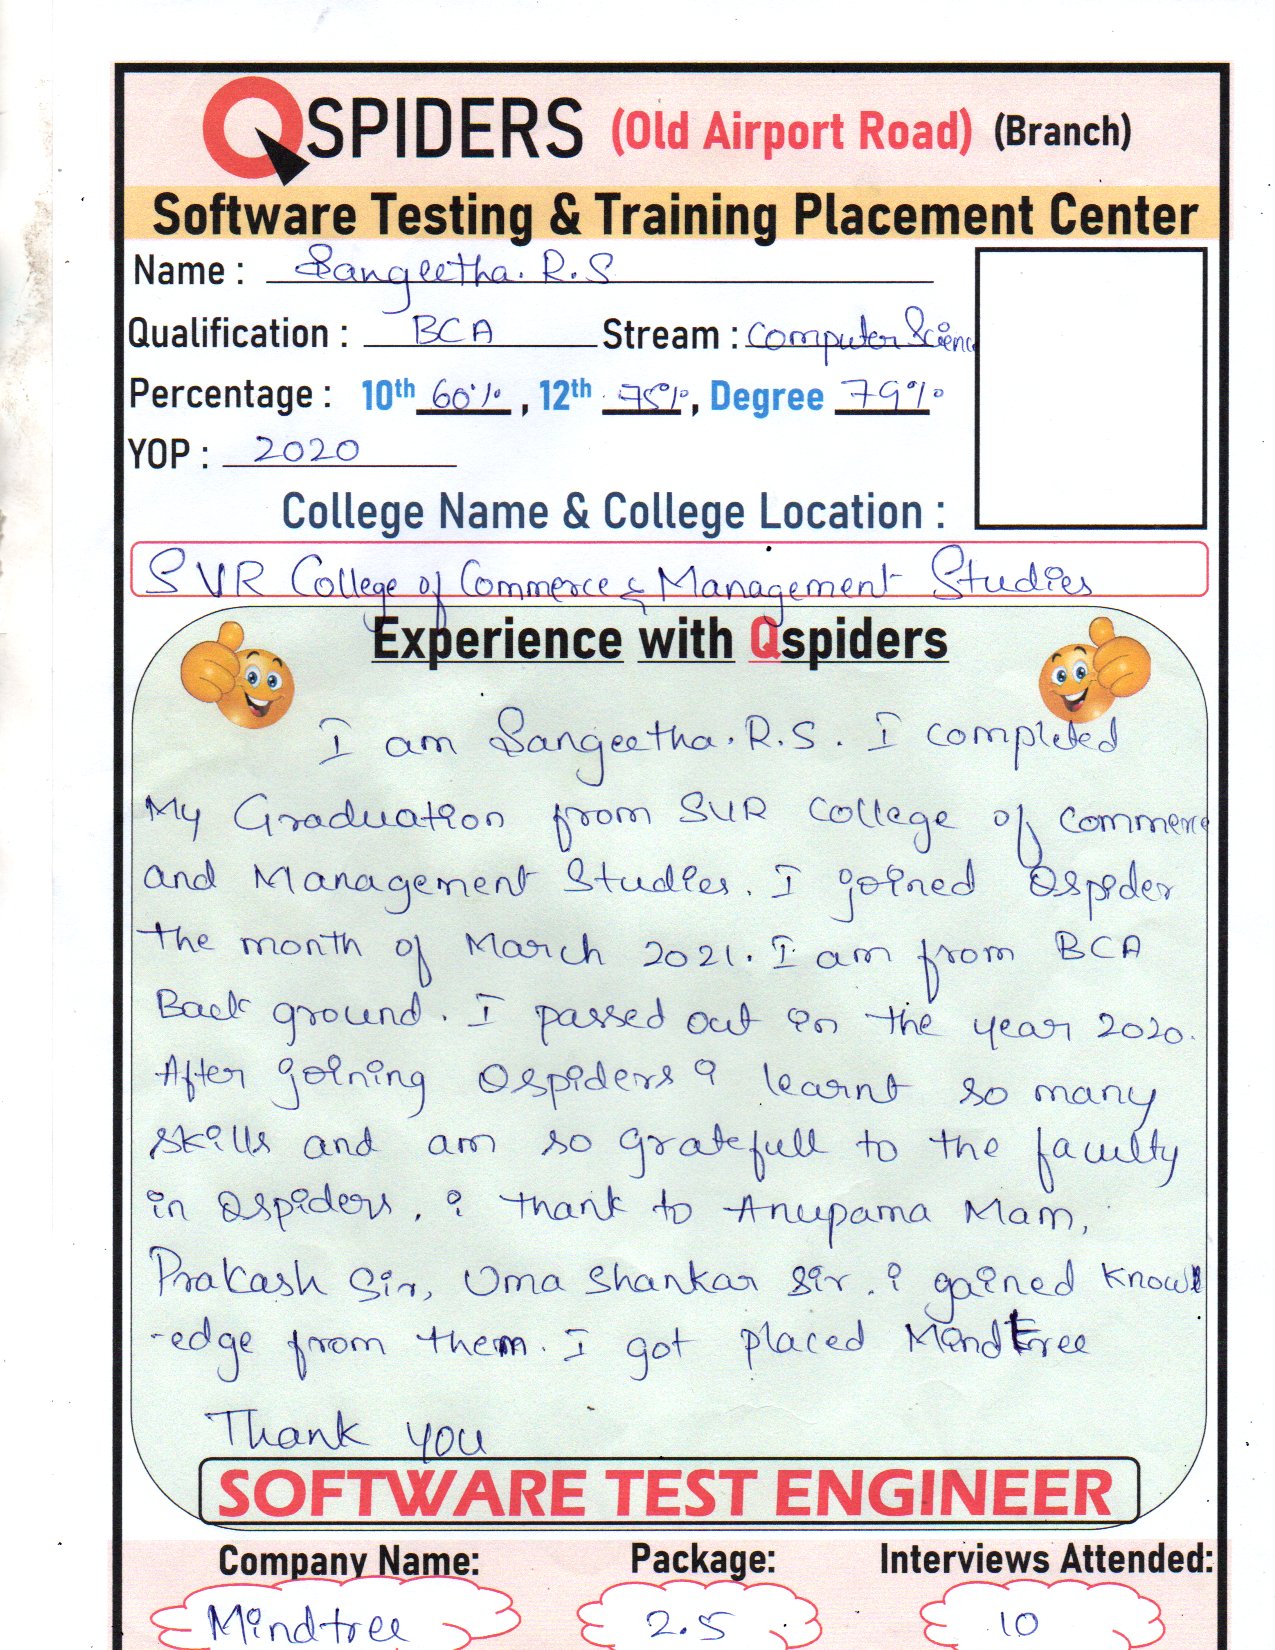 QSPIDERS (Old Airport Road) (Branch)
Software Testing & Training Placement Center
Name : Sangeetha. R.S
Qualification : BCA Stream : Computer Science
Percentage : 10th 60% , 12th 75%, Degree 79%
YOP : 2020
College Name & College Location :
SVR College of Commerce & Management Studies
Experience with Qspiders
I am Sangeetha. R.S. I completed
My Graduation from SVR College of Commerce
and Management Studies. I joined Qspider
the month of March 2021. I am from BCA
Back ground. I passed out in the year 2020.
After joining Qspiders i learnt so many
skills and am so gratefull to the faculty
in Qspiders. i thank to Anupama Mam,
Prakash Sir, Uma Shankar Sir. i gained knowl
-edge from them. I got placed Mindtree
Thank you
SOFTWARE TEST ENGINEER
Company Name: Package: Interviews Attended:
Mindtree 2.5 10